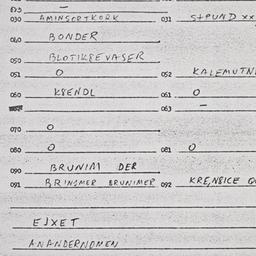 030 AMINSORTKORK 031 STPUND XX
040 BONDER
050 BLOTIKSEVASER
051 O 052 KALEMUTN
060 KSENDL 061 O
063 –
070 O
080 O 081 O
090 BRUNIM DER
091 BRINGMER BRUNIMER 092 KRE,NSICE
EJXET
ANANDERNOMEN